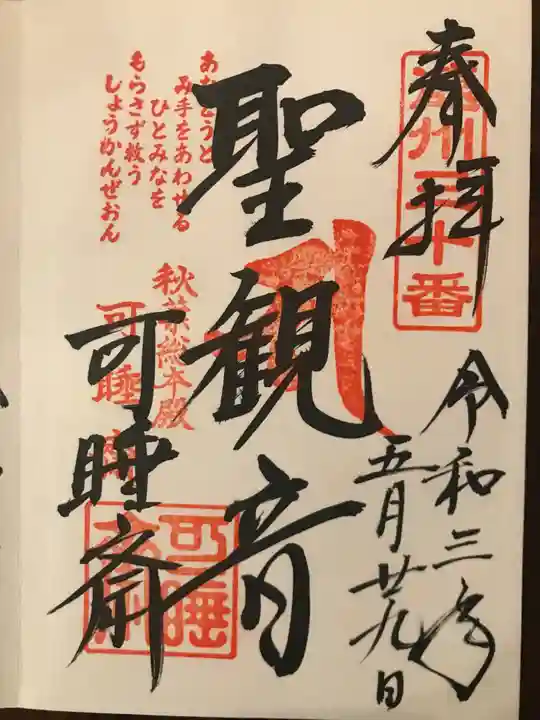 奉拝
遠州三十番
令和三年
五月廿九日
聖観音
あなとうと
み手をあわせる
ひとみなを
もらさず救う
しょうかんぜおん
秋葉総本殿
可睡斎
可睡斎
可睡